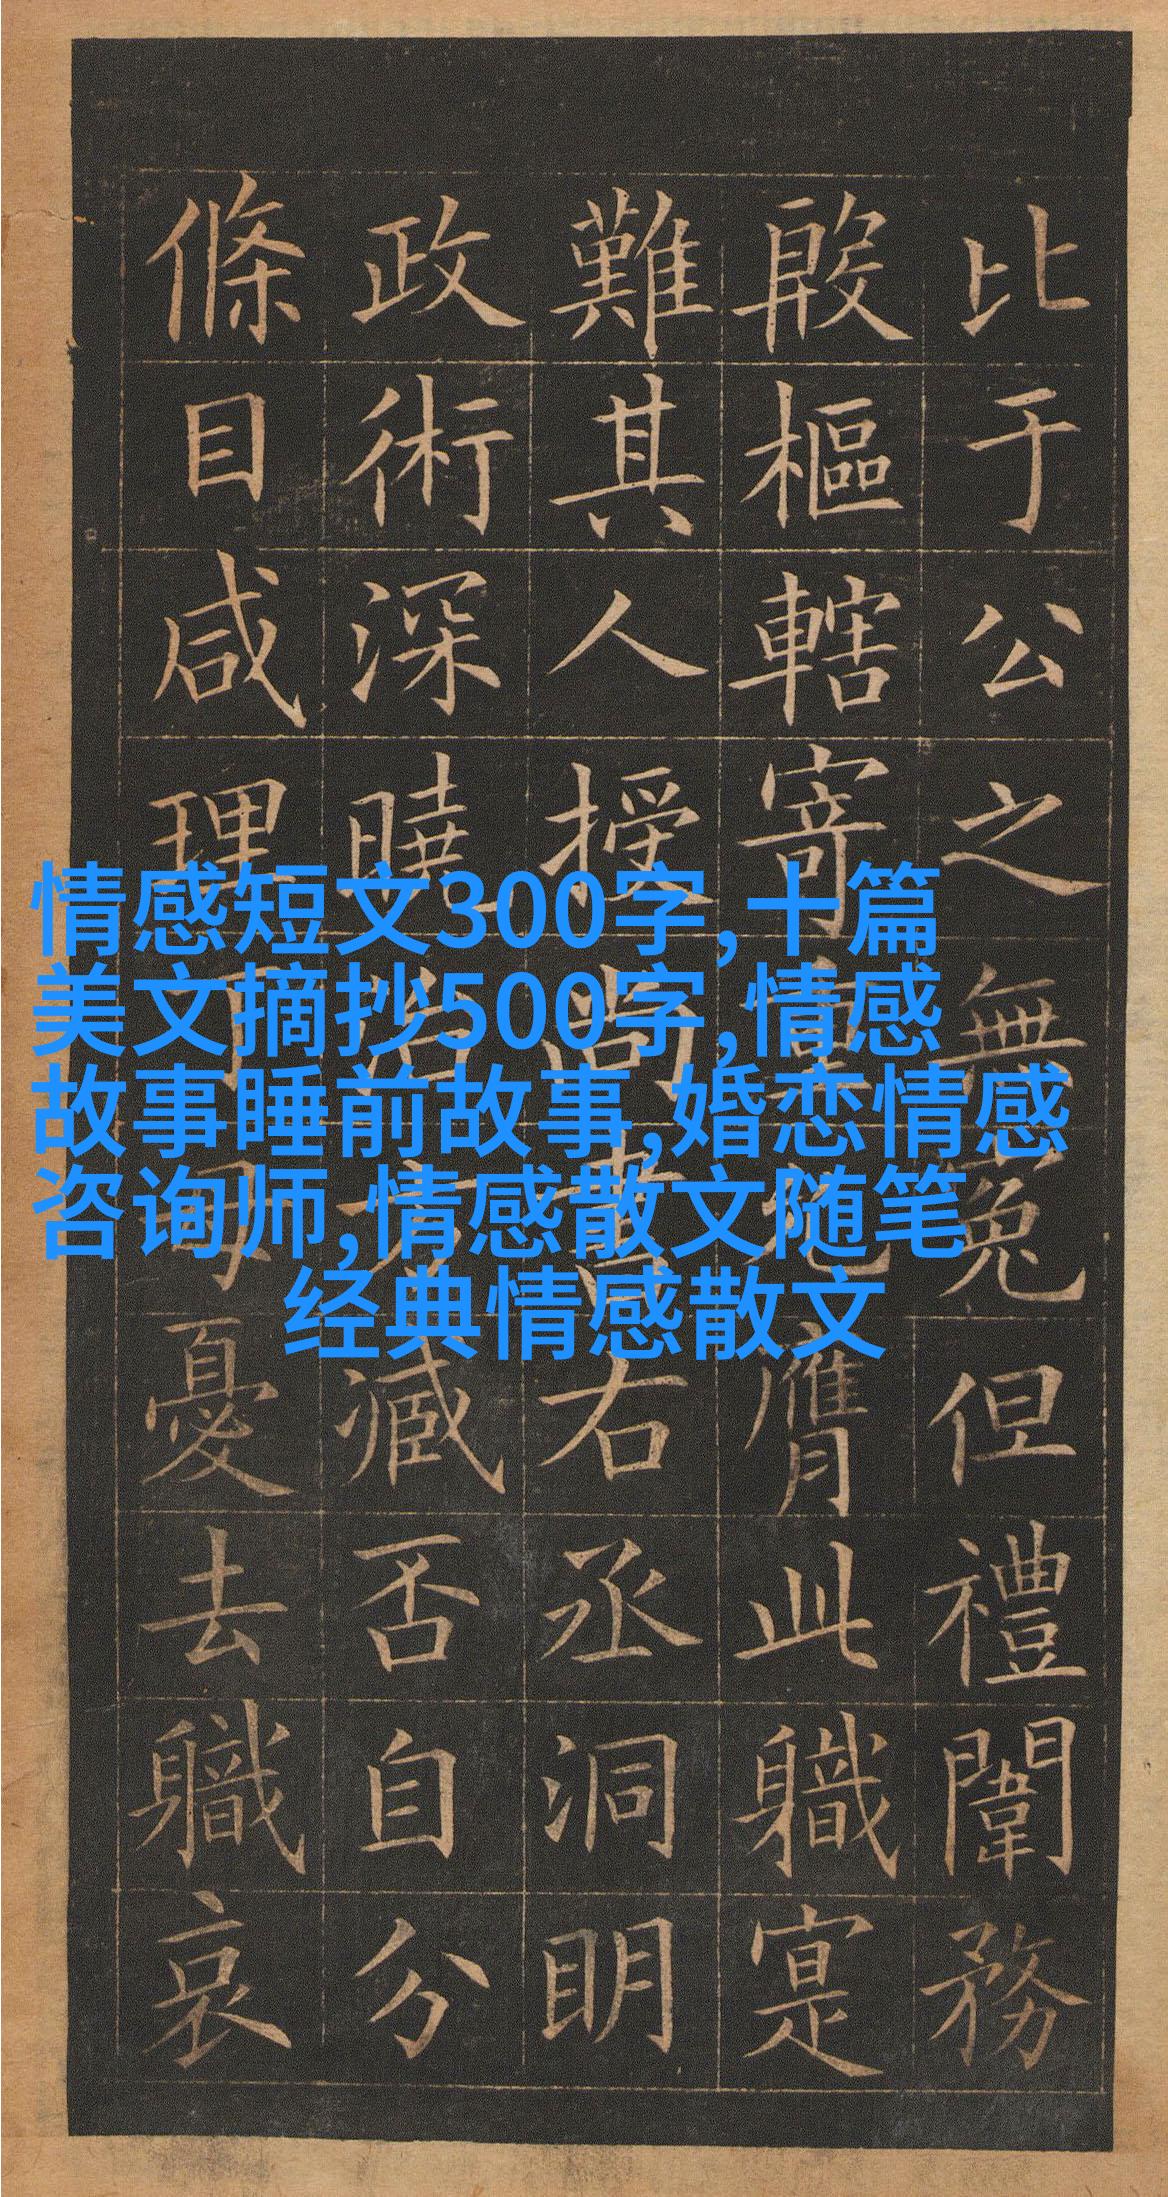 比于公之無冤但禮闈務
殷樞轄寄重膺此職寔
難其人授尚書右丞洞明
政術深曉治方臧否自分
條目咸理丁母憂去職哀
情感短文300字,十篇
美文摘抄500字,情感
故事睡前故事,婚恋情感
咨询师,情感散文随笔
经典情感散文